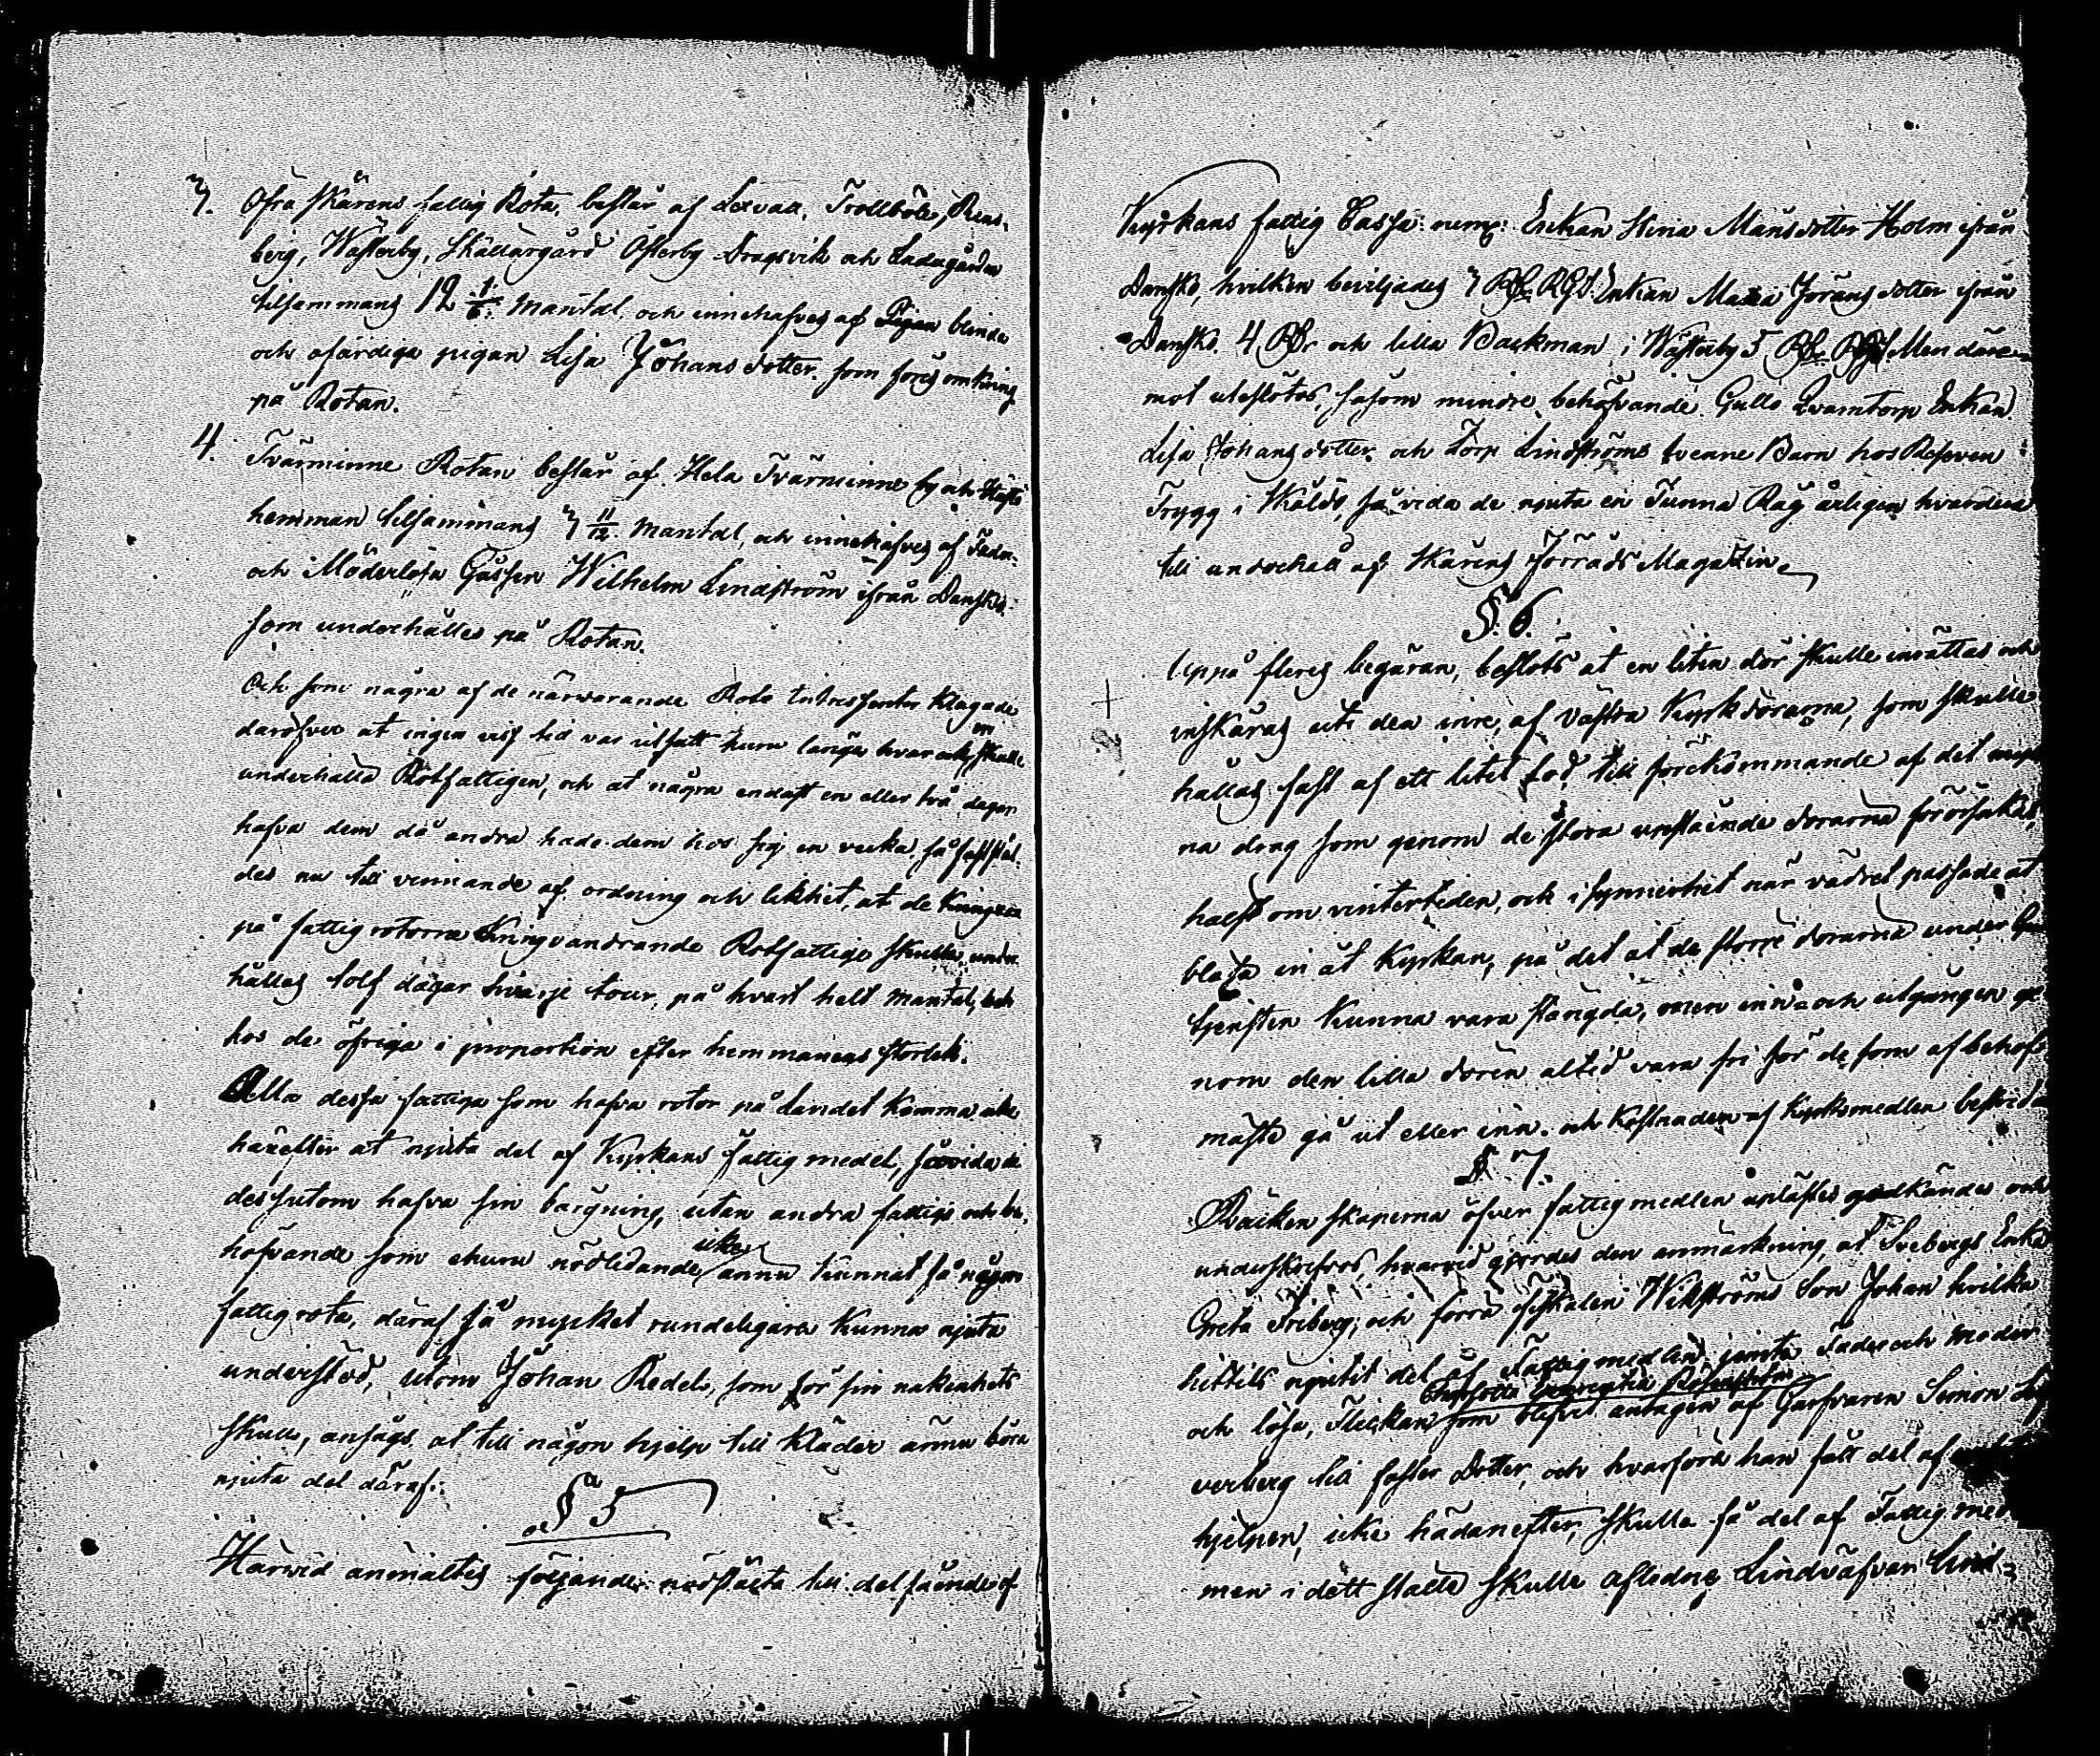 3. Öfra Skärens fattig Rota, består af Lexvall, Trollböle, Rens-
berg, Wästerby, Skällargård Österby Dragsvik och Ladugården
tilsammans 12 1/6 Mantal och innehafves af Pigan blinda
och ofärdiga pigan Lisa Johansdotter som föres omkring
på Rotan.
4. Tvärminne Rotan består af Hela Tvärminne by och
hemman tilsammans 3 11/12 Mantal, och innehafves af Fader-
och Moderlösa Gåssen Wilhelm Lindström ifrån Danskog
som underhålles på Rotan.
Och som några af de närwarande Rote Intressenter klagade
deröfver at ingen viss tid var utsatt huru länge hvar och en skulle
underhålla Rotfattigen, och at några endast en eller två dagar
hafva dem då andra hade dem hos sig en vecka, så faststäl-
des nu till vinnande af ordning och likhet, at de
på fattig rotorna kringvandrande Rotfattige skulle under-
hållas tolf dagar hvarje tour, på hvart helt Mantal, och
hos de öfriga i proportion efter hemmanens storlek.
Alla dessa fattiga som hafva rotor på Landet komma icke
härefter at njuta del af Kyrkans Fattig medel, såvida de
dessutom hafva sin bärgning, utan andra fattige och be-
höfvande som ehuru nödlidande icke ännu kunnat få någon
fattigrota, däraf så mycket rundeligare kunna njuta
understöd, utom Johan Redels, som för sin nakenhets
skull, ansågs at till någon hjelp till kläder ännu böra
njuta del däraf.
§ 5
Härwid anmältes följande nödstälta till delfående af
Kyrkans fattig Cassa: neml: Enkan Stina Månsdotter Holm ifrån
Danskog, hvilken beviljades 3 Rb. RGS. Enkan Maria Joransdotter ifrån
Danskog 4 Rb. och lilla Backman i Wästerby 5 Rb. Men däre-
mot uteslötos, såsom mindre behöfvande Gullö Qvarntorp Enkan
Lisa Johansdotter och Torp Lindströms tvenne Barn hos Reserven
Trygg i Skåldö, så vida de njuta en Tunna Råg årligen hvardera
till underhåll af Skärens Förråds Magazin.
§. 6.
Uppå fleres begäran, beslöts at en liten dör skulle inrättas och
inskäras uti den inre af västra Kyrkdörarna, som skulle
hållas fast af ett litet Lod, till förekommande af det
na drag som genom de stora upstående dörarna förorsakas,
hälst om vintertiden, och i synnerhet när vädret passade at
blåsa in åt Kyrkan, på det at de större dörarna under Gu
tjensten kunna vara stängda, men inn- och utgången ge
nom den lilla dören altid vara fri för de som af behof
måste gå ut eller inn. och Kostnaden af Kyrkomedlen bestrida
§. 7.
Räkenskaperna öfver fattigmedlen uplästes godkändes och
underskrefvos, hvarvid gjordes den anmärkning, at Svebergs Enka
Greta Friberg, och förra fiskalen Wikströms Son Johan hvilka
hittils njutit del af Fattigmedlen jemte Fader och Moder
och lösa, Flickan Charlotta Rosenström som blifvit antagen af Garfvaren Simon Sil
verberg till foster Dotter, och hvarföre han fått del af
hjelpen, icke hädanefter, skulle få del af Fattig med
men i dett ställe skulle afledne Lindväfvar Lind-